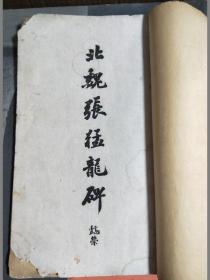 北魏張猛龍碑